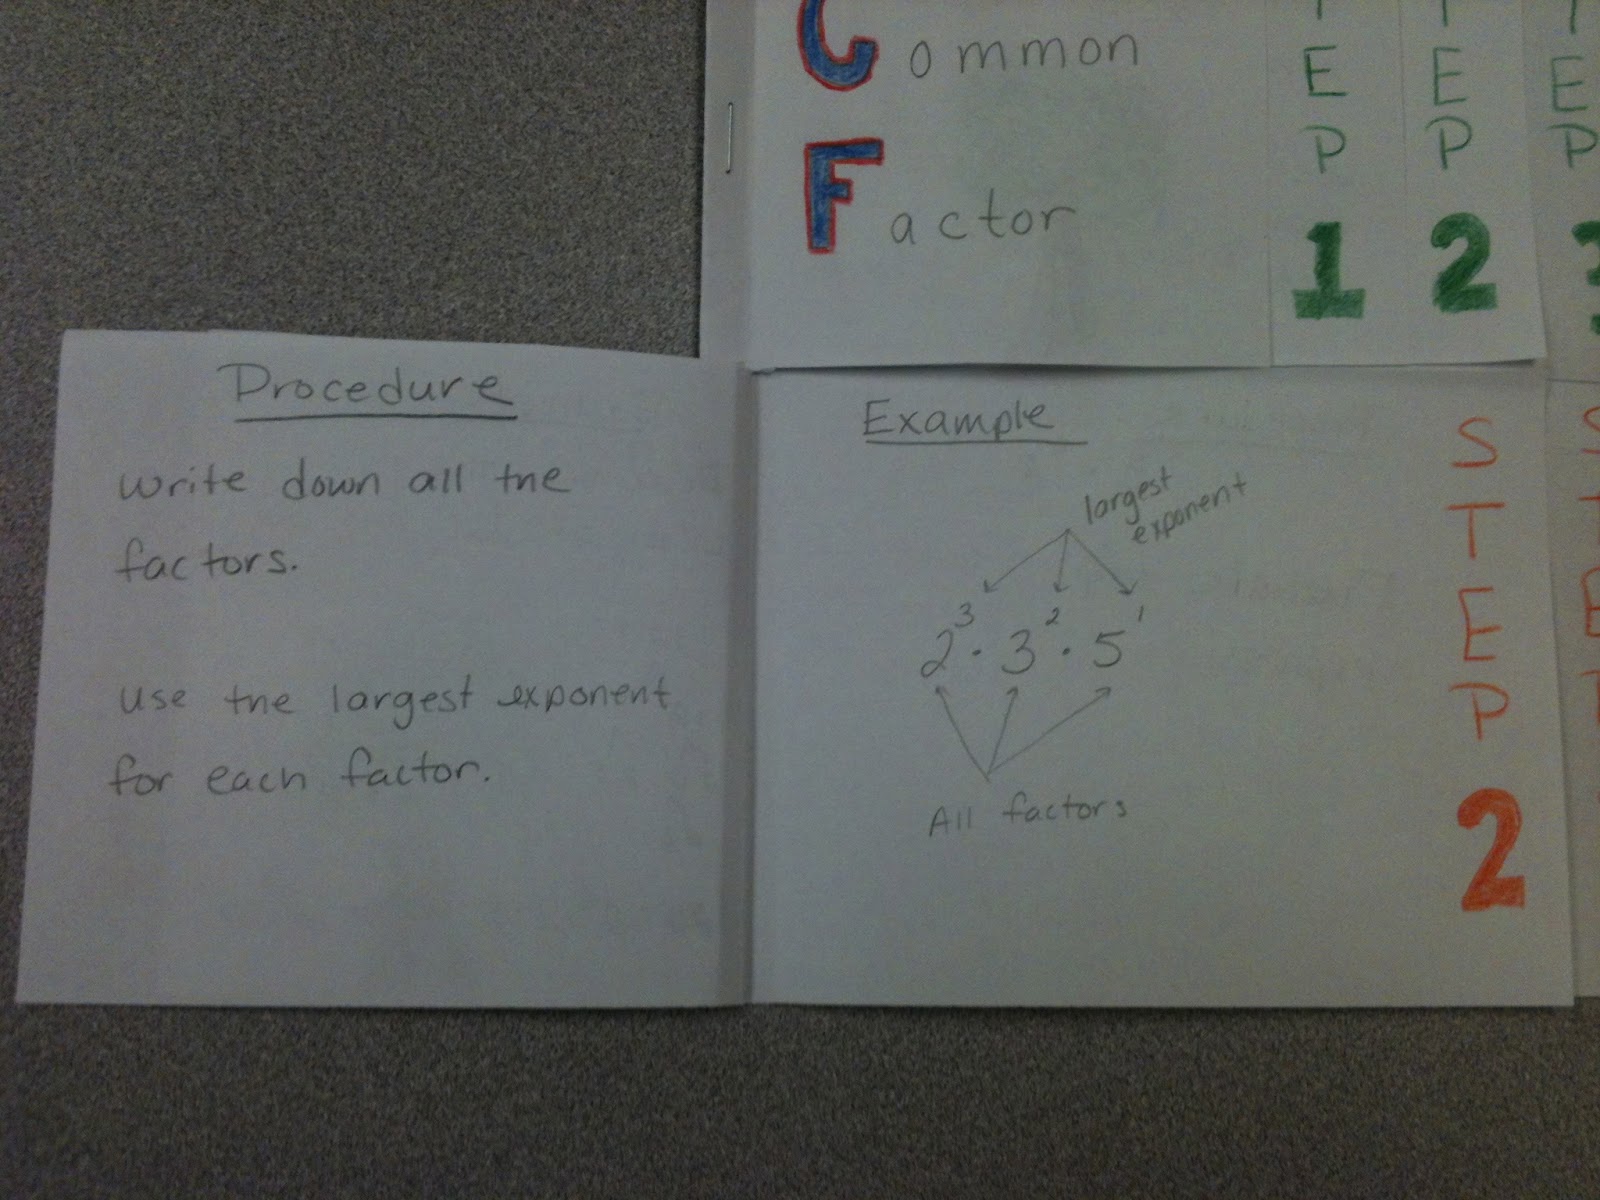 Common
Factor
TEP 1
TEP 2
EP
Procedure
Write down all the
factors.
Use the largest exponent
for each factor.
Example
largest
exponent
2³ · 3² · 5¹
All factors
STEP 2